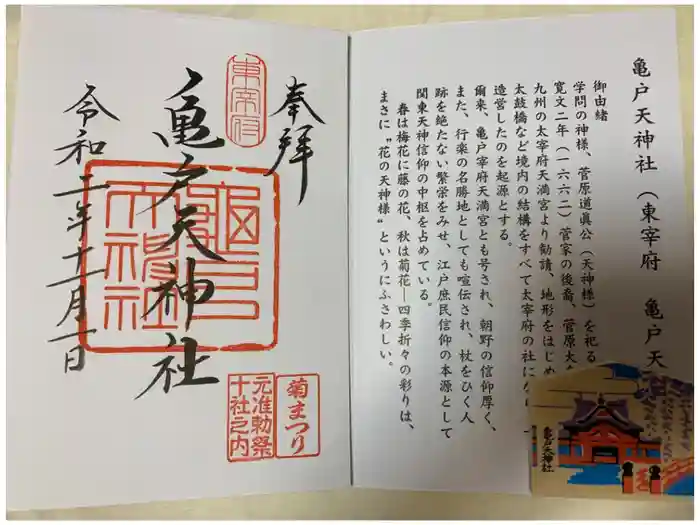 奉拝
東宰府
亀戸天神社
亀戸天神社
令和二年十一月一日
菊まつり
元准勅祭
十社之内
亀戸天神社（東宰府　亀戸天
御由緒
学問の神様、菅原道眞公（天神様）を祀る
寛文二年（一六六二）菅家の後裔、菅原大
九州の太宰府天満宮より勧請、地形をはじめ
太鼓橋など境内の結構をすべて太宰府の社にな
造営したのを起源とする。
爾来、亀戸宰府天満宮とも号され、朝野の信仰厚く、
また、行楽の名勝地としても喧伝され、杖をひく人
跡を絶たない繁栄をみせ、江戸庶民信仰の本源として
関東天神信仰の中枢を占めている。
春は梅花に藤の花、秋は菊花―四季折々の彩りは、
まさに“花の天神様”というにふさわしい。
亀戸天神社